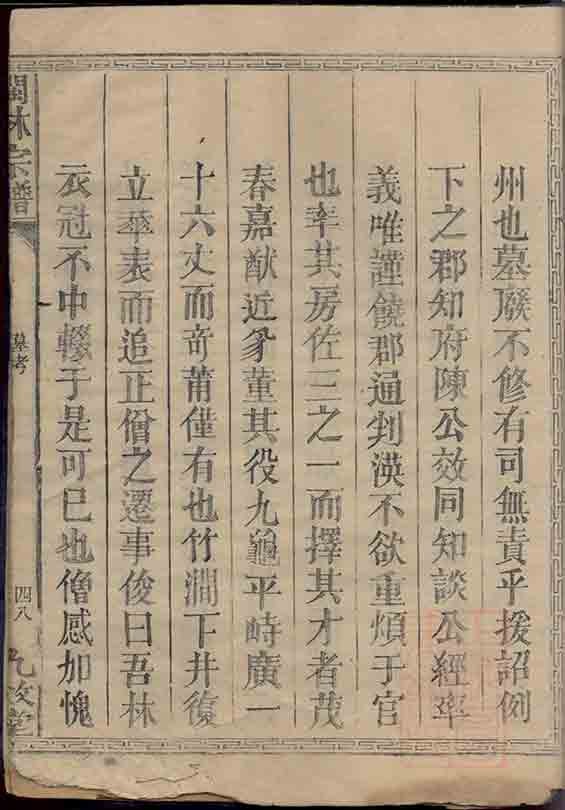 州也墓廢不修有司無責乎援詔例
下之郡知府陳公效同知談公經率
義唯謹饒郡通判漢不欲重煩于官
也率其房佐三之一而擇其才者茂
春嘉猷近豸董其役九龜平畤廣一
十六丈而奇莆僅有也竹澗下井復
立華表而追正僧之遷事俊曰吾林
衣冠不中轢于是可已也僧感加愧
閩林宗譜
墓考
四八
九牧堂